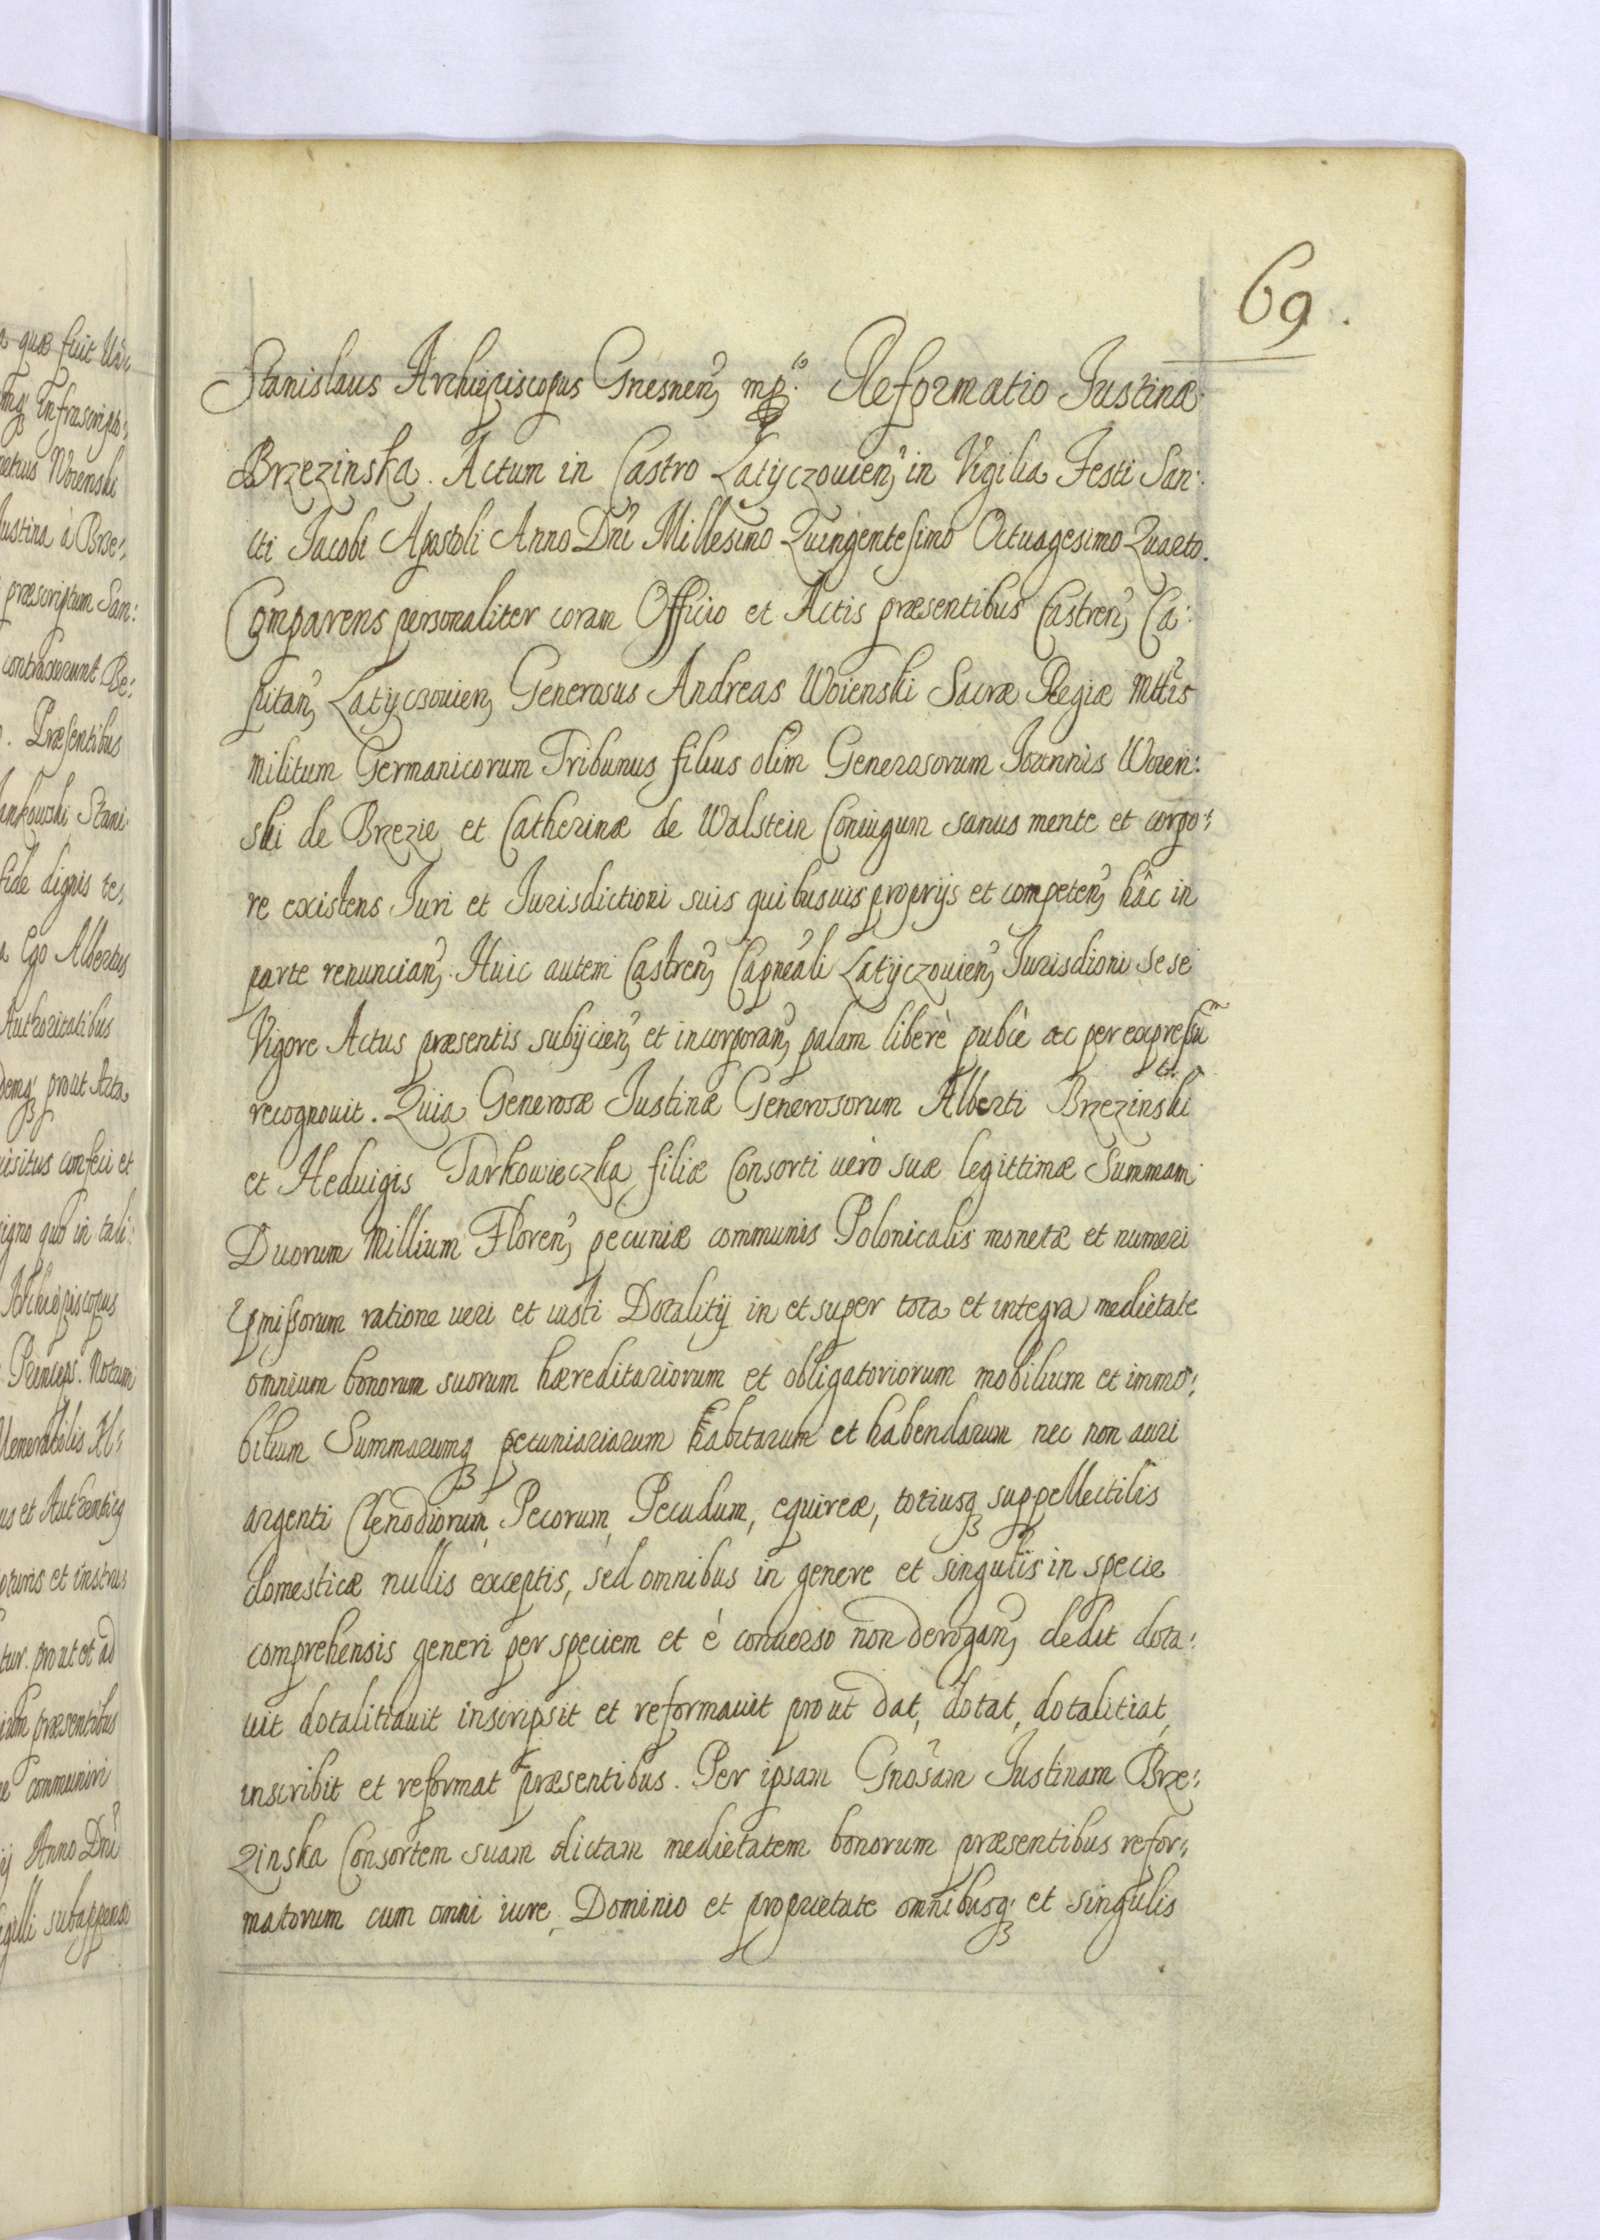 69.
Stanislaus Archiepiscopus Gnesnen, mp. Reformatio Justinæ
Brzezinska. Actum in Castro Latyczouien, in Vigilia Festi San:
cti Jacobi Apostoli Anno Dni Millesimo Quingentesimo Octuagesimo Quarto.
Comparens personaliter coram Officio et Actis præsentibus Castren, Ca:
pitan, Latyczouien, Generosus Andreas Woienski Sacræ Regiæ Mttis
Militum Germanicorum Tribunus filius olim Generosorum Joannis Woien:
ski de Brzezie et Catherinæ de Walstein Coniugum sanus mente et corpo:
re existens Juri et Jurisdictioni suis quibusuis proprijs et competen, hâc in
parte renuncian, Huic autem Castren, Capneali Latyczouien, Jurisdioni sese
Vigore Actus præsentis subijcien, et incorporan, palam liberè publè ac per expressum
recognouit. Quia Generosæ Justinæ Generosorum Alberti Brzezinski
et Heduigis Tarkowieczka filiæ Consorti uerò suæ legittimæ Summam
Duorum Millium Floren, pecuniæ communis Polonicalis monetæ et numeri
ratione ueri et iusti Dotalitij in et super tota et integra medietate
omnium bonorum suorum hæreditariorum et obligatoriorum mobilium et immo:
bilium Summarumq pecuniariarum habitarum et habendarum nec non auri
argenti Clenodiorum, Pecorum, Pecudum, equireæ, totiusq suppellectilis
domesticæ nullis exceptis, sed omnibus in genere et singulis in specie
comprehensis generi per speciem et è conuerso non derogan, dedit dota:
uit dotalitiauit inscripsit et reformauit prout dat, dotat, dotalitiat,
inscribit et reformat præsentibus. Per ipsam Gnosam Justinam Brze:
zinska Consortem suam dictam medietatem bonorum præsentibus refor:
matorum cum omni iure, Dominio et proprietate omnibusq et singulis